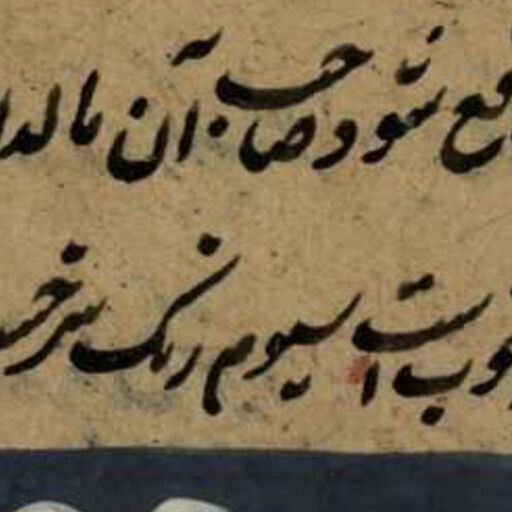 فع شود صاحب آن مالدا
خوب است سیوم رنک سرخست